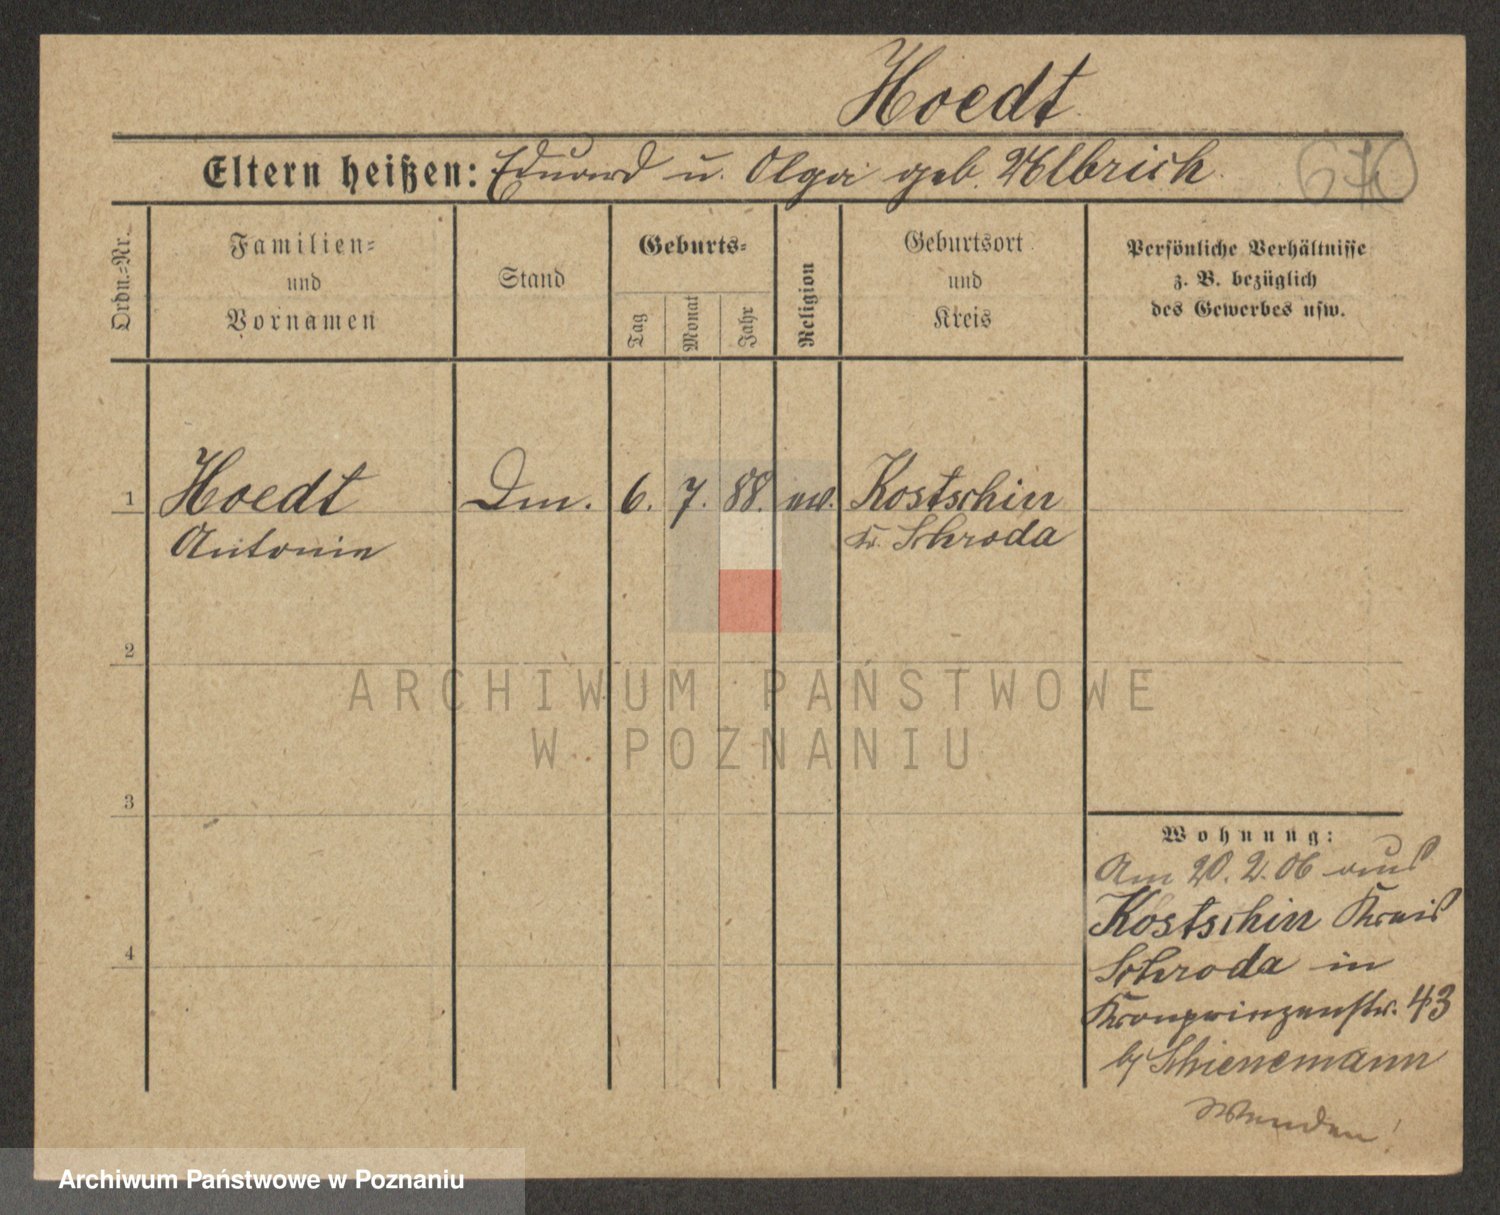 Hoedt
Eltern heißen: Eduard u. Olga geb. Ulbrich
670
Ordn.=Nr.
Familien=
und
Vornamen
Stand
Geburts=
Tag
Monat
Jahr
Religion
Geburtsort
und
Kreis
Persönliche Verhältnisse
z. B. bezüglich
des Gewerbes usw.
1 Hoedt Dm. 6. 7. 88. ev. Kostschin
Antonie Kr. Schroda
2
ARCHIWUM PAŃSTWOWE
W POZNANIU
3
Wohnung:
Am 20. 2. 06 aus
Kostschin Kreis
4
Schroda in
Kronprinzenstr. 43
b/ Schienemann
Wenden!
Archiwum Państwowe w Poznaniu